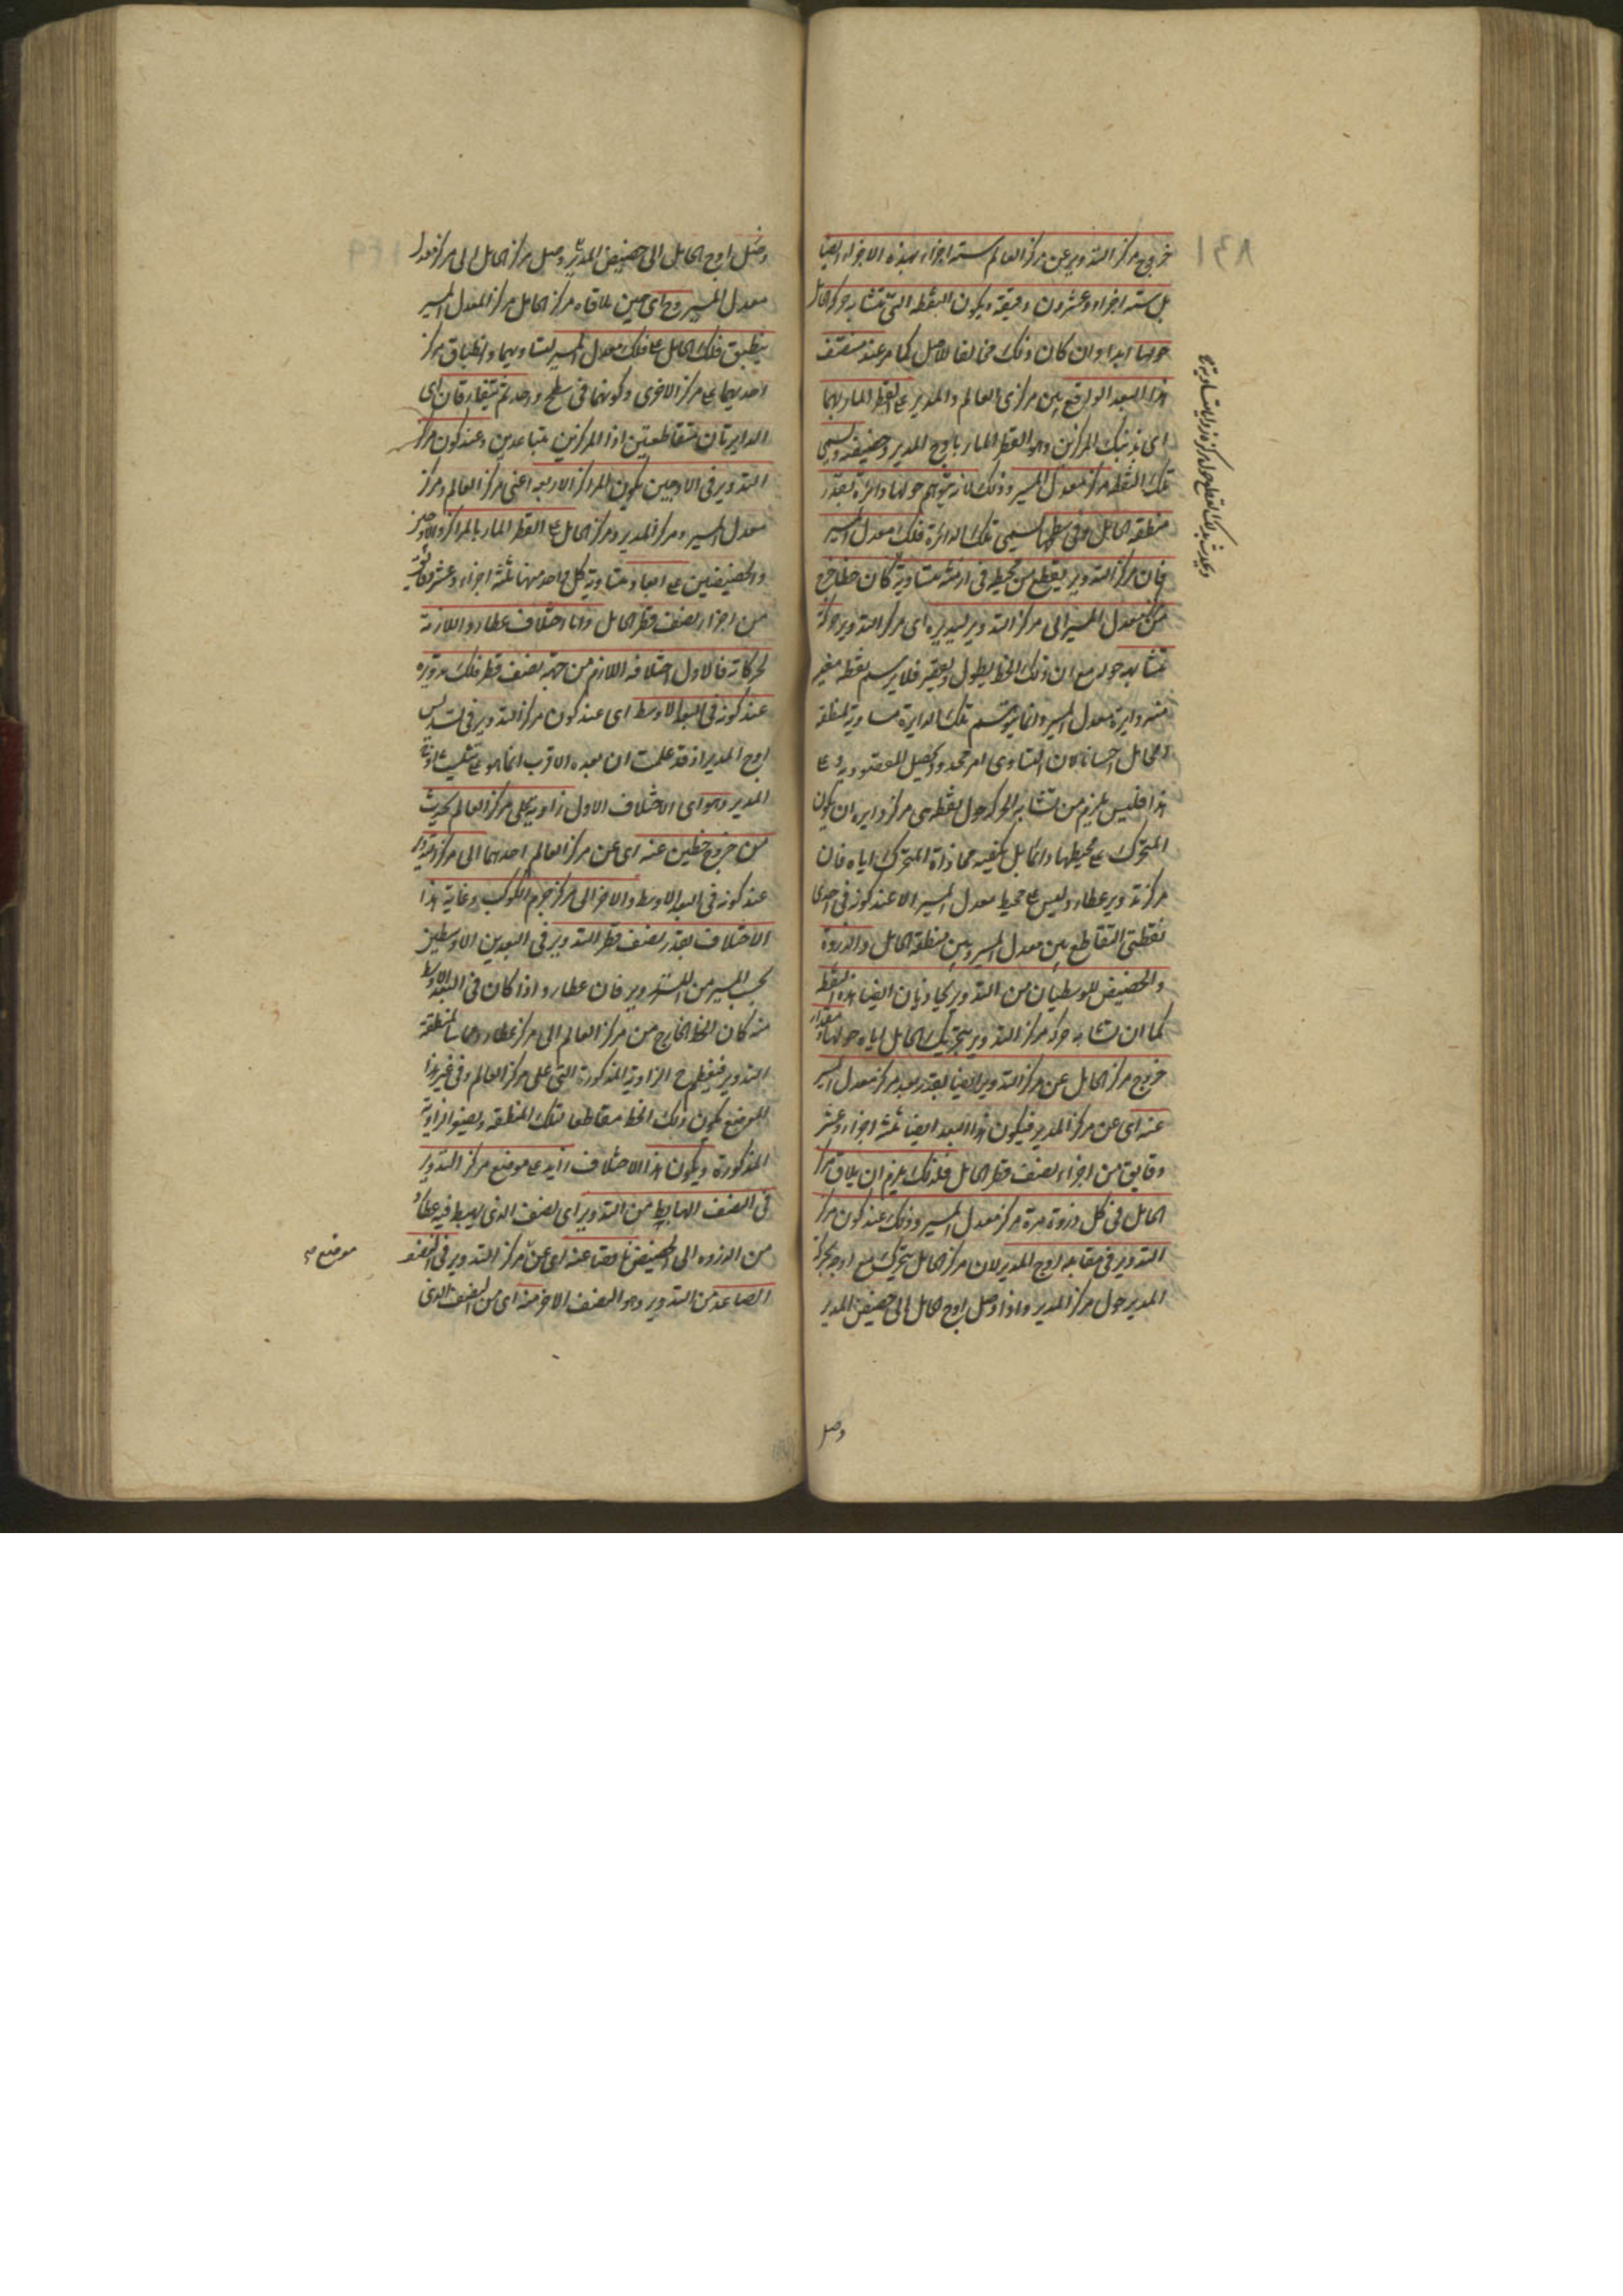 خروج مركز التدوير عن مركز العالم ستة اجزاء بهذه الاجزاء ايضا
بل ستة اجزاء وعشرون دقيقة ويكون النقطة التى تتشابه حركة الحامل
حولها ابدا وان كان ذلك مخالفا للاصل كما مر عند منتصف
هذا البعد الواقع بين مركزى العالم والمدير على القطر المار بهما
اى بذينك المركزين وهو القطر المار باوج المدير وحضيضه ويسمى
تلك النقطة مركز معدل المسير وذلك لانه يتوهم حولها دائرة بقدر
منطقة الحامل وفى سطحها يسمى تلك الدائرة فلك معدل المسير
فان مركز التدوير يقطع من محيطه فى ازمنة متساوية كان خطا خرج
من مركز معدل المسير الى مركز التدوير ليديره اى مركز التدوير حركة
متشابهة حوله مع ان ذلك الخط يطول ويقصر فلا يرسم بنقطة معينة
منه دايرة معدل المسير وانما يتوهم تلك الدايرة مساوية لمنطقة
الحامل لان التساوى امر محدود
هذا فليس يلزم من تشابه الحركة حول نقطة هى مركز دايرة ان يكون
المتحرك على محيطها دائما بل يكفيه محاذاة المتحرك اياه فان
مركز تدوير عطارد ليس على محيط معدل المسير الا عند كونه فى احدى
نقطتى التقاطع بين معدل المسير وبين منطقة الحامل والذروة
والحضيض الوسطيان من التدوير يحاذيان ايضا هذه النقطة
كما ان تشابه حركة مركز التدوير بتحريك الحامل اياه حولها ومقدار
خروج مركز الحامل عن مركز التدوير ايضا بقدر بعد مركز معدل المسير
عنه اى عن مركز المدير فيكون هذا البعد ايضا ثلثة اجزاء وعشر
دقايق من اجزاء نصف قطر الحامل فلذلك يلزم ان يلاقى مركز
الحامل فى كل دورة مرة مركز معدل المسير وذلك عند كون مركز
التدوير فى مقابلة اوج المدير لان مركز الحامل يتحرك مع اوجه بحركة
المدير حول مركز المدير واذا وصل اوج الحامل الى حضيض المدير
وصل
وصل اوج الحامل الى حضيض المدير وصل مركز الحامل الى مركز معدل
معدل المسير وح اى حين ملاقاة مركز الحامل مركز المعدل المسير
ينطبق فلك الحامل على فلك معدل المسير لتساويهما وانطباق مركز
احديهما على مركز الاخرى وكونهما فى سطح واحد ثم يتفارقان اى
الدايرتان متقاطعتين اذا المركزين متباعدين وعند كون مركز
التدوير فى الاوجين يكون المراكز الاربعة اعنى مركز العالم ومركز
معدل المسير ومركز المدير ومركز الحامل على القطر المار بالمراكز والاوجين
والحضيضين على ابعاد متساوية كل واحد منها ثلثة اجزاء وعشر دقائق
من اجزاء نصف قطر الحامل واما اختلاف عطارد اللازمة
لحركاته فالاول اختلافه اللازم من جهة نصف قطر فلك تدويره
عند كونه فى البعد الاوسط اى عند كون مركز التدوير فى تسديس
اوج المدير اذ قد علمت ان بعده الاقرب انما هو فى تثليث اوج
المدير وهو اى الاختلاف الاول زاوية على مركز العالم يحدث
من خروج خطين عنه اى عن مركز العالم احدهما الى مركز تدوير
عند كونه فى البعد الاوسط والاخر الى مركز جرم الكوكب وغاية هذا
الاختلاف بقدر نصف قطر التدوير فى البعدين الاوسطين
بحسب المسير من التدوير فان عطارد اذا كان فى البعد الاوسط
منه كان الخط الخارج من مركز العالم الى مركز عطارد مماسا لمنطقة
التدوير فيعظم ح الزاوية المذكورة التى على مركز العالم وفى غير هذا
الموضع يكون ذلك الخط مقاطعا لتلك المنطقة ويضيق الزاوية
المذكورة ويكون هذا الاختلاف زايدا على موضع مركز التدوير
فى النصف الهابط من التدوير اى نصف الذى يهبط فيه عطارد
من الذروة الى الحضيض ناقصا عنه اى عن مركز التدوير فى النصف
الصاعد من التدوير وهو النصف الاخر منه اى من النصف الذى
موضع صح